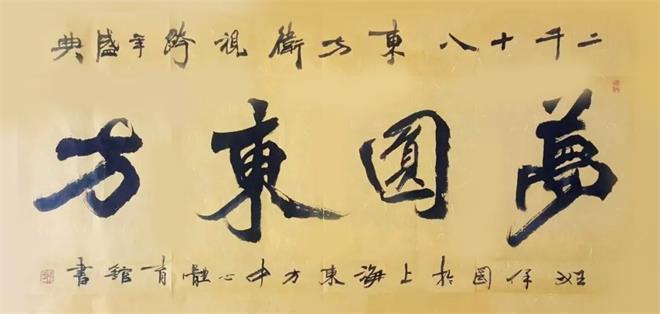 二千十八東方衛視跨年盛典
夢圓東方
保國於上海東方中心體育館書